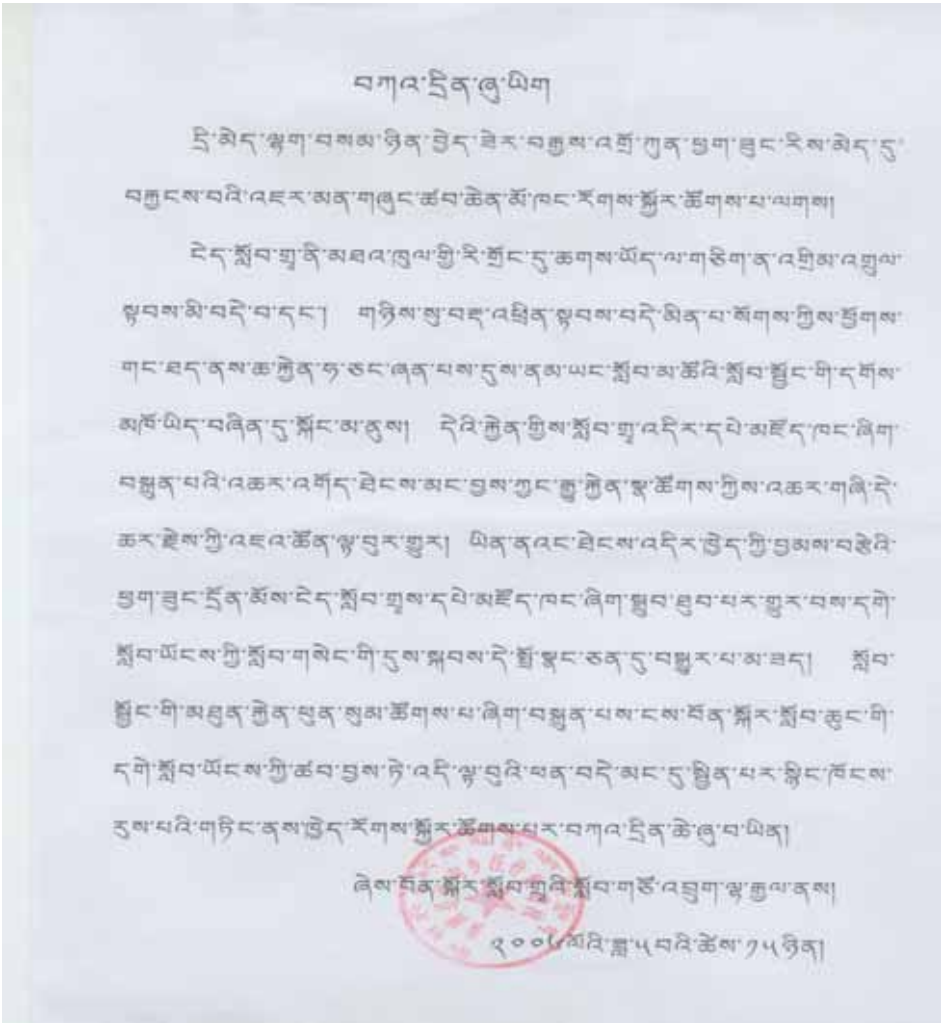 བཀའ་དྲིན་ཞུ་ཡིག
དྲི་མེད་ལྷག་བསམ་ཉིན་བྱེད་ཟེར་བརྒྱས་འགྲོ་ཀུན་ཕྱག་ཟུང་རིས་མེད་དུ་
བརྐྱངས་བའི་འཇར་མན་གཞུང་ཚབ་ཆེན་མོ་ཁང་རོགས་སྐྱོར་ཚོགས་པ་ལགས།
ངེད་སློབ་གྲྭ་ནི་མཐའ་ཁུལ་གྱི་རི་གྲོང་དུ་ཆགས་ཡོད་ལ་གཅིག་ན་འགྲིམ་འགྲུལ་
སྟབས་མི་བདེ་བ་དང་། གཉིས་སུ་བརྡ་འཕྲིན་སྟབས་བདེ་མིན་པ་སོགས་ཀྱིས་ཕྱོགས་
གང་ཐད་ནས་ཆ་རྐྱེན་ཧ་ཅང་ཞན་པས་དུས་ནམ་ཡང་སློབ་མ་ཚོའི་སློབ་སྦྱོང་གི་དགོས་
མཁོ་ཡིད་བཞིན་དུ་སྐོང་མ་ནུས། དེའི་རྐྱེན་གྱིས་སློབ་གྲྭ་འདིར་དཔེ་མཛོད་ཁང་ཞིག་
བསྐྲུན་པའི་འཆར་འགོད་ཐེངས་མང་བྱས་ཀྱང་རྒྱུ་རྐྱེན་སྣ་ཚོགས་ཀྱིས་འཆར་གཞི་དེ་
ཆར་རྗེས་ཀྱི་འཇའ་ཚོན་ལྟ་བུར་གྱུར། ཡིན་ནའང་ཐེངས་འདིར་ཁྱེད་ཀྱི་བྱམས་བརྩེའི་
ཕྱག་ཟུང་དྲོན་མོས་ངེད་སློབ་གྲྭས་དཔེ་མཛོད་ཁང་ཞིག་སྒྲུབ་ཐུབ་པར་གྱུར་བས་དགེ་
སློབ་ཡོངས་ཀྱི་སློབ་གསེང་གི་དུས་སྐབས་དེ་སྤྲོ་སྣང་ཅན་དུ་བསྒྱུར་པ་མ་ཟད། སློབ་
སྦྱོང་གི་མཐུན་རྐྱེན་ཕུན་སུམ་ཚོགས་པ་ཞིག་བསྐྲུན་པས་ངས་བོན་སྐོར་སློབ་ཆུང་གི་
དགེ་སློབ་ཡོངས་ཀྱི་ཚབ་བྱས་ཏེ་འདི་ལྟ་བུའི་ཕན་བདེ་མང་དུ་སྤྱིན་པར་སྙིང་ཁོངས་
རུས་པའི་གཏིང་ནས་ཁྱེད་རོགས་སྐྱོར་ཚོགས་པར་བཀའ་དྲིན་ཆེ་ཞུ་བ་ཡིན།
ཞེས་བོན་སྐོར་སློབ་གྲྭའི་སློབ་གཙོ་འབྲུག་ལྷ་རྒྱལ་ནས།
ལོའི་ཟླ་༥བའི་ཚེས་༡༥ཉིན།